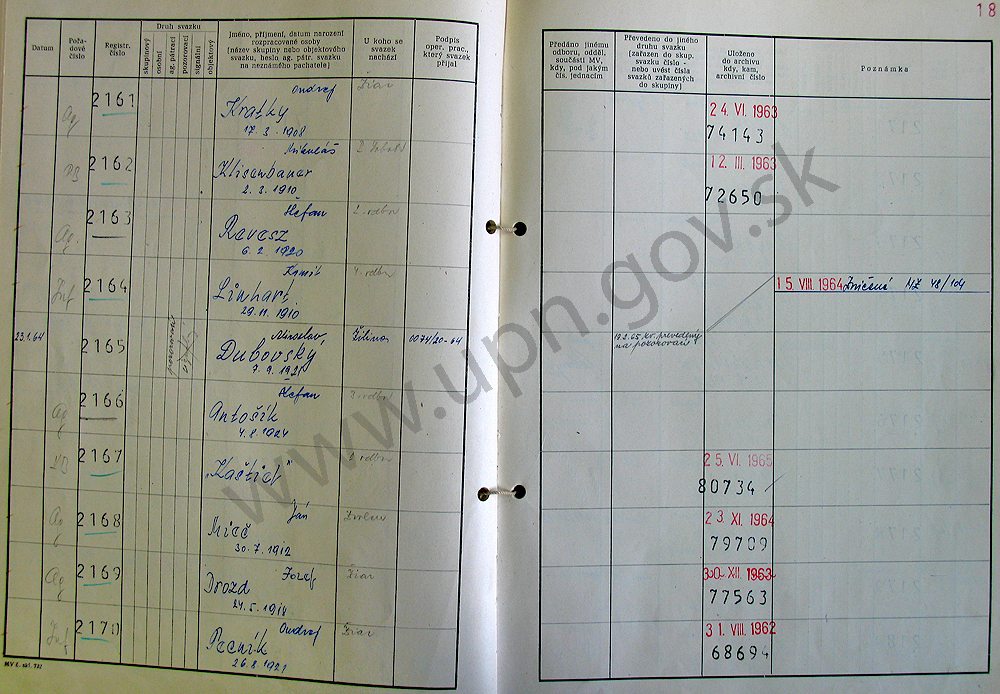 18
Datum
Pořadové číslo
Registr. číslo
Druh svazku
skupinový
osobní
ag. pátrací
pozorovací
signální
objektový
Jméno, příjmení, datum narození
rozpracované osoby
(název skupiny nebo objektového
svazku, heslo ag. pátr. svazku
na neznámého pachatele)
U koho se
svazek
nachází
Podpis
oper. prac.,
který svazek
přijal
Předáno jinému
odboru, odděl.
součásti MV,
kdy, pod jakým
čís. jednacím
Převedeno do jiného
druhu svazku
(zařazen do skup.
svazku číslo -
nebo uvést čísla
svazků zařazených
do skupiny)
Uloženo
do archivu
kdy, kam,
archivní číslo
Poznámka
Ag 2161 Ondrej Žiar
Kratky
17. 3. 1908
24. VI. 1963
74143
2162 Mikuláš
Klisenbauer
2. 3. 1910
12. III. 1963
72650
Ag. 2163 Štefan 2. odbor
Revesz
6. 2. 1920
Inf 2164 Kamil 4. odbor
Linhart
29. 11. 1910
15. VIII. 1964 Zničené MŽ 48/104
23.1.64 2165 pozorovací Miroslav Žilina 0074/20-64
Dubovský
7. 9. 1921
19.2.65 prevedený
na pozorovací
Ag 2166 Štefan odbor
Antošík
4. 8. 1924
2167 „Kaštieľ" 2. odbor
25. VI. 1965
80734
Ag 2168 Ján Zvolen
Mieč
30. 7. 1912
23. XI. 1964
79709
Ag 2169 Jozef Žiar
Drozd
24. 5. 1918
30. XII. 1963
77563
Inf 2170 Ondrej Žiar
Pecník
26. 8. 1921
31. VIII. 1962
68694
www.upn.gov.sk